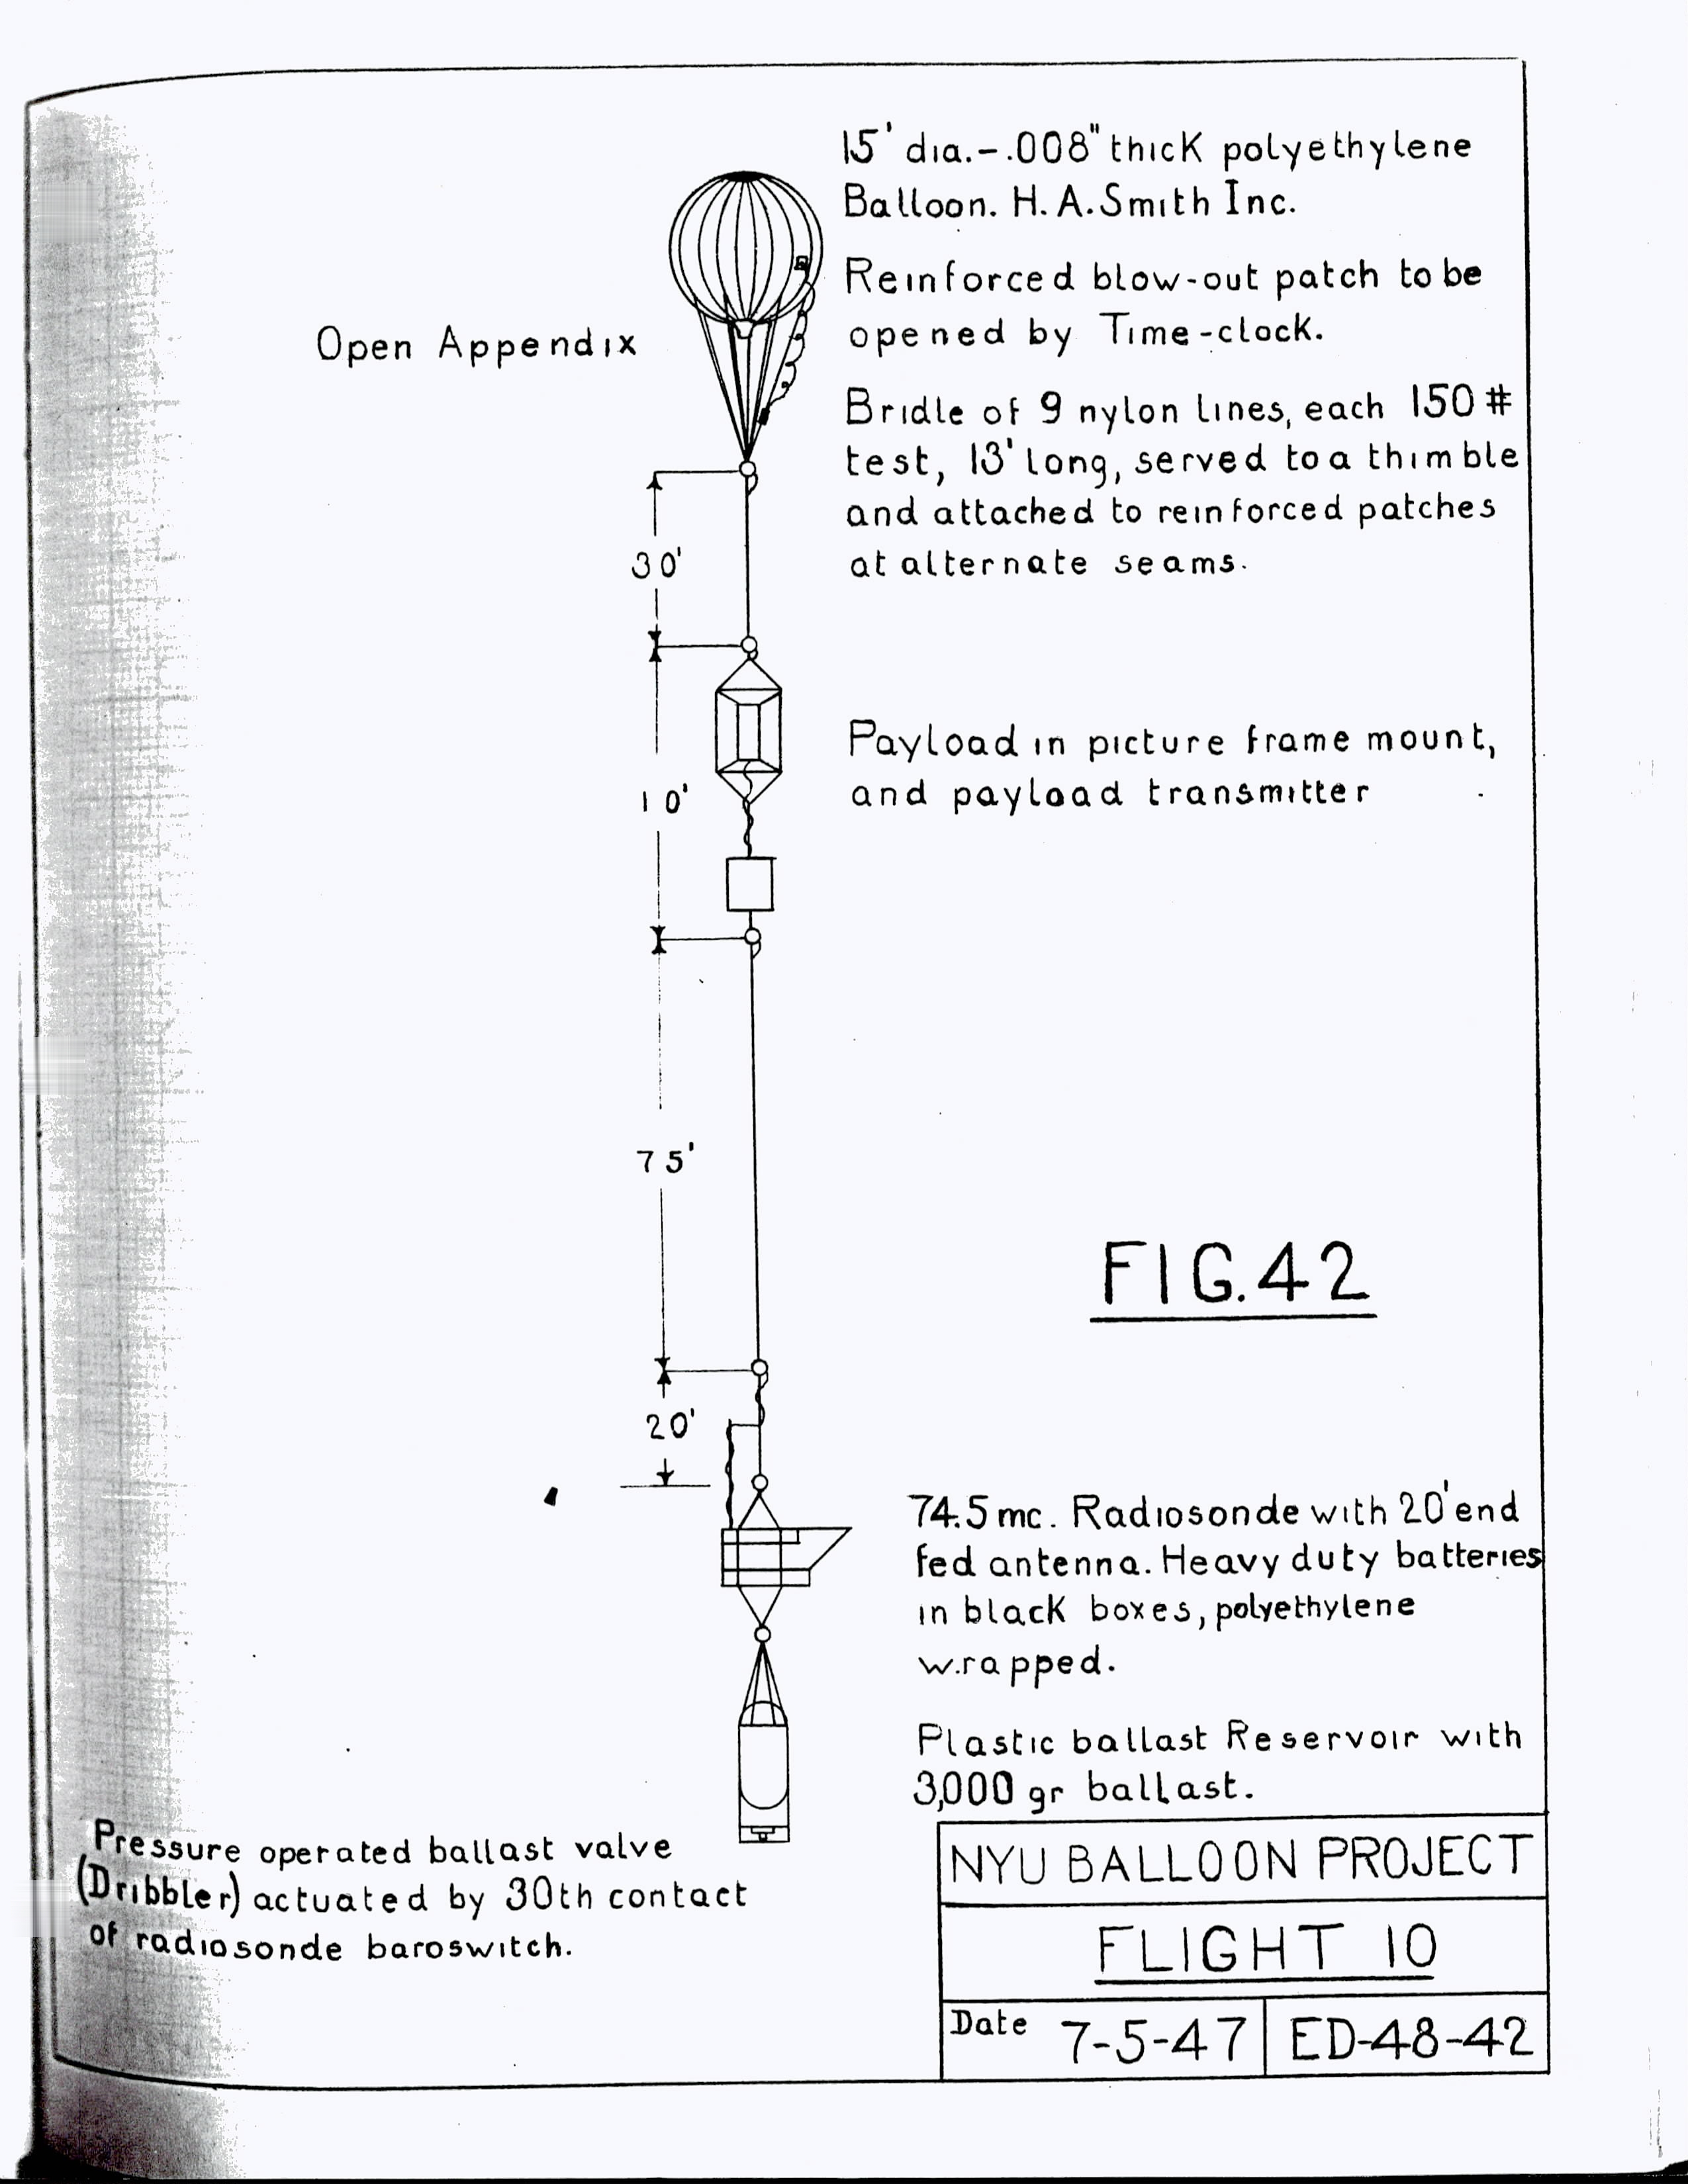 15' dia.-.008" thick polyethylene
Balloon. H.A. Smith Inc.
Reinforced blow-out patch to be
opened by Time-clock.
Open Appendix
Bridle of 9 nylon lines, each 150 #
test, 13' long, served to a thimble
and attached to reinforced patches
at alternate seams.
30'
Payload in picture frame mount,
and payload transmitter
10'
75'
FIG. 42
20'
74.5 mc. Radiosonde with 20' end
fed antenna. Heavy duty batteries
in black boxes, polyethylene
wrapped.
Plastic ballast Reservoir with
3,000 gr ballast.
Pressure operated ballast valve
(Dribbler) actuated by 30th contact
of radiosonde baroswitch.
NYU BALLOON PROJECT
FLIGHT 10
Date 7-5-47
ED-48-42